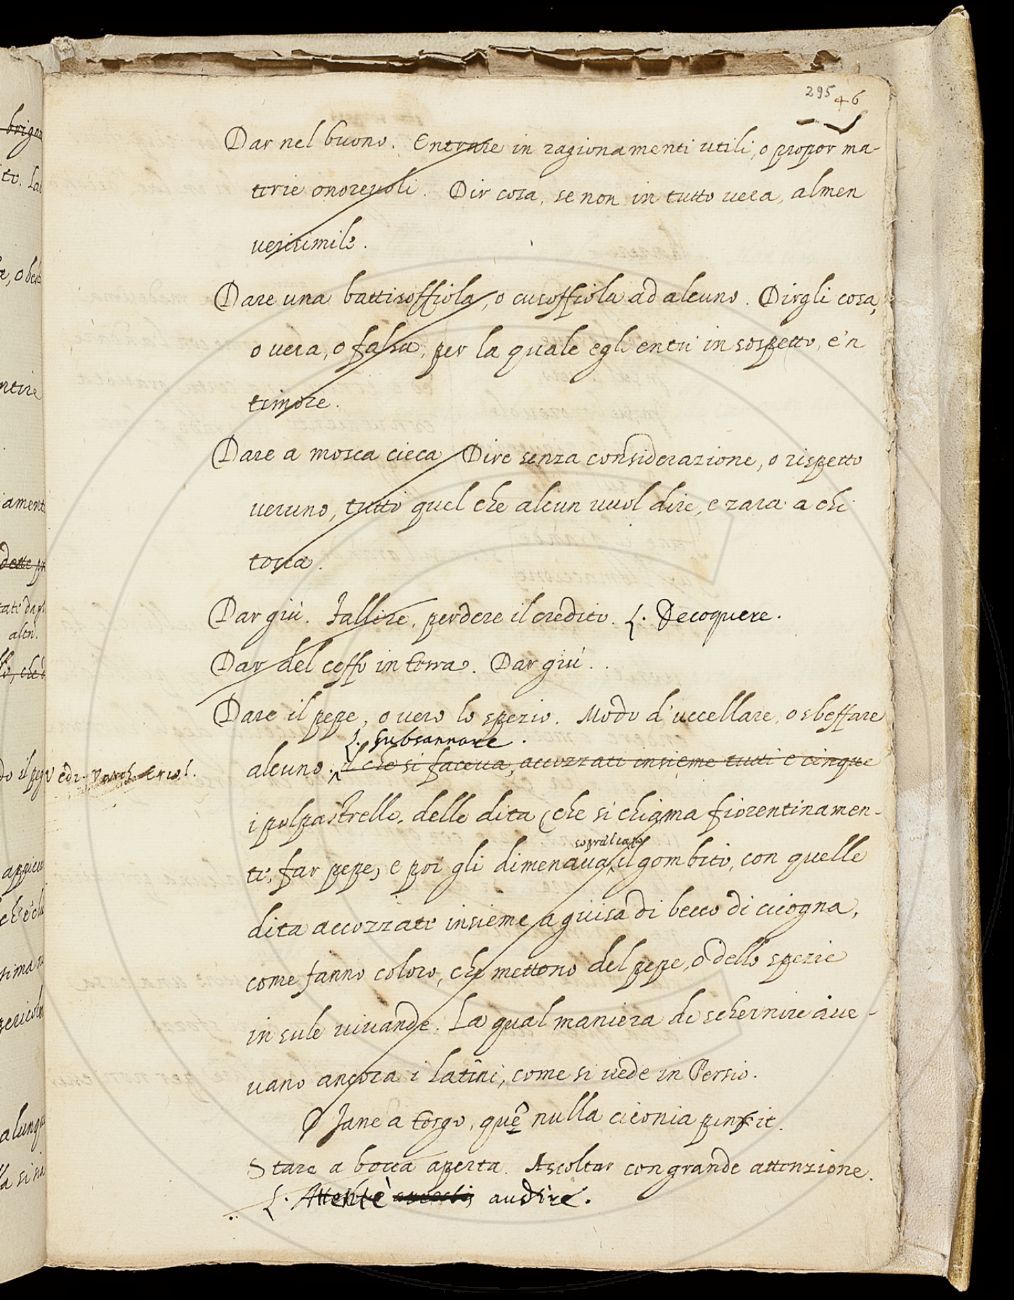 295 46
Dar nel buono. Entrare in ragionamenti utili, o propor ma-
terie onorevoli. Dir cosa, se non in tutto vera, almen
verisimile.
Dare una battisoffiola, o cusoffiola ad alcuno. Dirgli cosa,
o vera, o falsa, per la quale egli entri in sospetto, e'n
timore.
Dare a mosca cieca. Dire senza considerazione, o rispetto
veruno, tutto quel che alcun vuol dire, e zara a chi
tocca.
Dar giù. Fallire, perdere il credito. L. Decoquere.
Dar del ceffo in terra. Dar giù.
Dare il pepe, o vero lo spezio. Modo d'uccellare, o sbeffare
L. subsannare.
alcuno. Il che si faceva, accozzati insieme tutti e cinque
i polpastrelli delle dita (che si chiama fiorentinamen-
te, far pepe) e poi gli dimenava, il gombito, con quelle
dita accozzate insieme, a guisa di becco di cicogna,
come fanno coloro, che mettono del pepe, o delle spezie
in sule vivande. La qual maniera di schernire ave-
vano ancora i latini, come si vede in Persio.
O Jane a tergo, quem nulla ciconia pinsit.
Stare a bocca aperta. Ascoltar con grande attenzione.
L. Attentè audire.